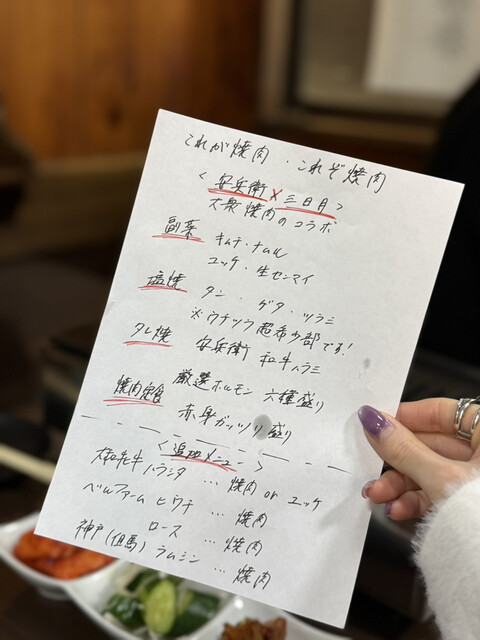 これが焼肉・これぞ焼肉
<安兵衛×三日月>
大衆焼肉のコラボ
副菜 キムチ・ナムル
ユッケ・生センマイ
塩焼 タン・ゲタ・ツラミ
※ウチワラ超希少部です!
タレ焼 安兵衛 和牛ハラミ
焼肉定食 厳選ホルモン 六種盛り
赤身ガッツリ盛り
<追加メニュー>
大和牝牛 ハラシタ … 焼肉 or ユッケ
ベルファーム ヒウチ … 焼肉
ロース … 焼肉
神戸(但馬) ラムシン … 焼肉